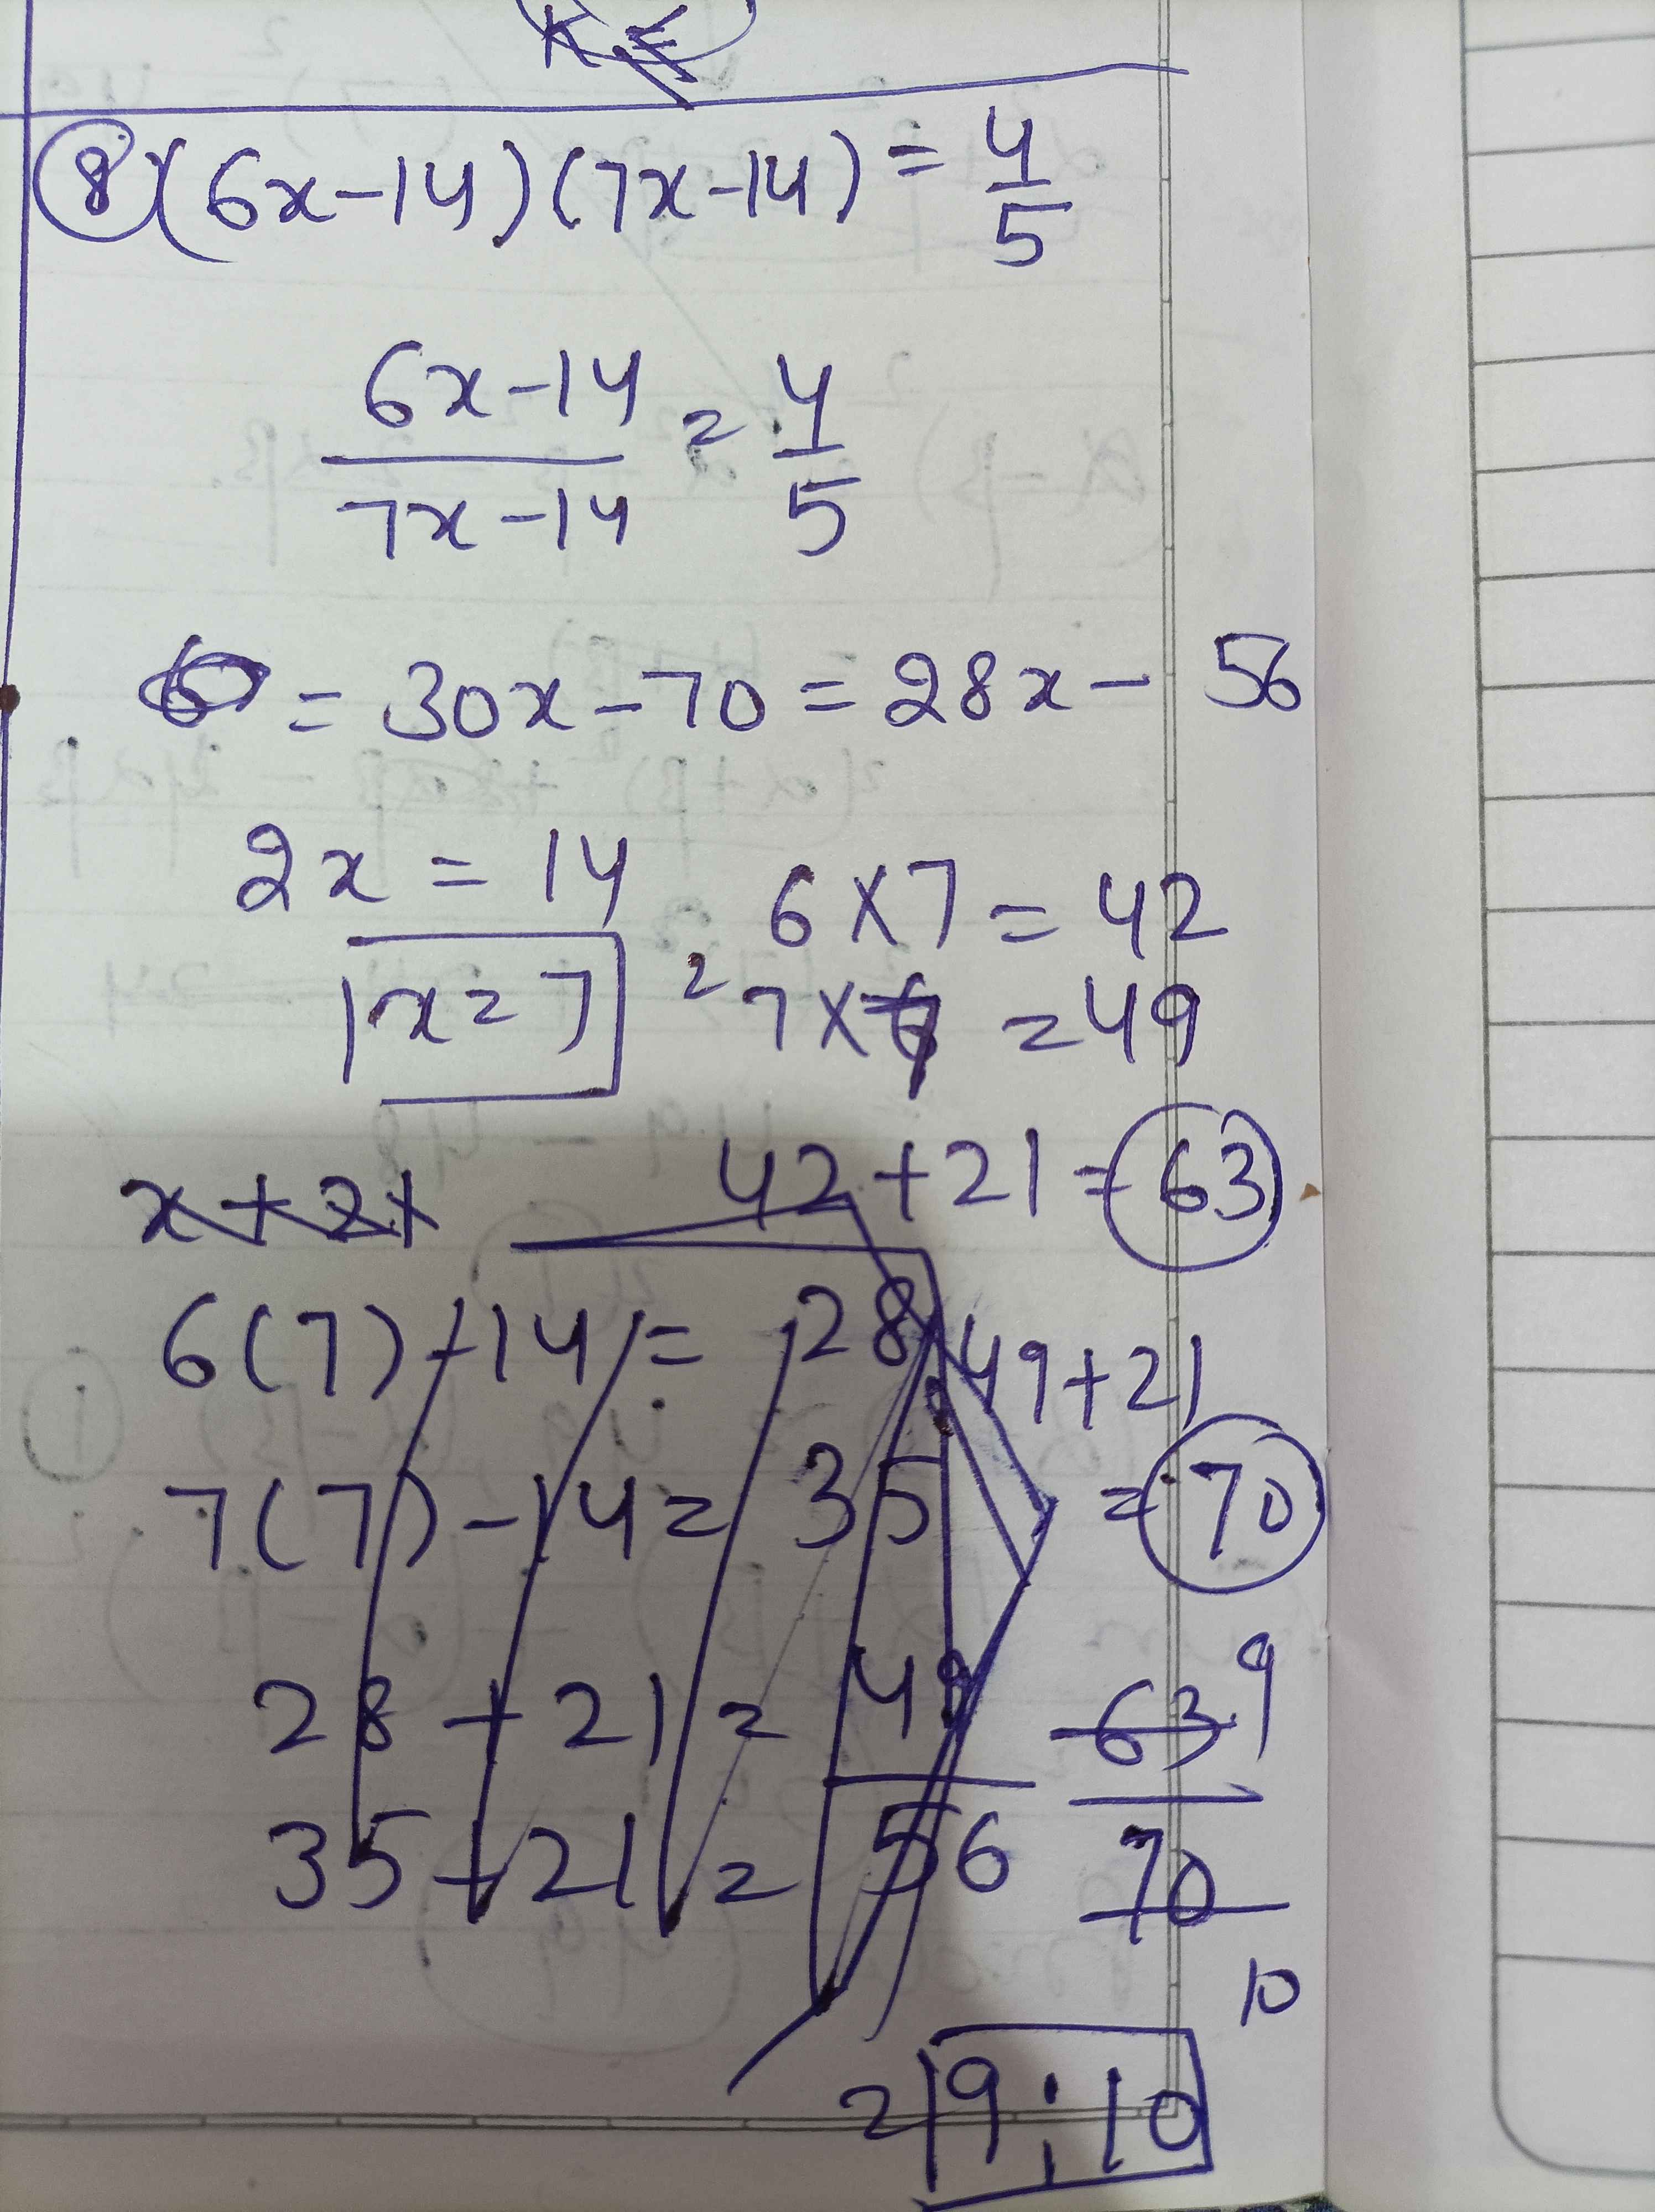 ⑧ (6x-14)(7x-14) = 4/5
6x-14/7x-14 = 4/5
= 30x-70 = 28x- 56
2x = 14
6x7 = 42
x = 7
7x7 = 49
42+21 = 63
x+21
6(7)-14 = 28
49+21
7(7)-14 = 35
= 70
28 + 21 = 49
63 9
35+21 = 56
70
10
= 9:10